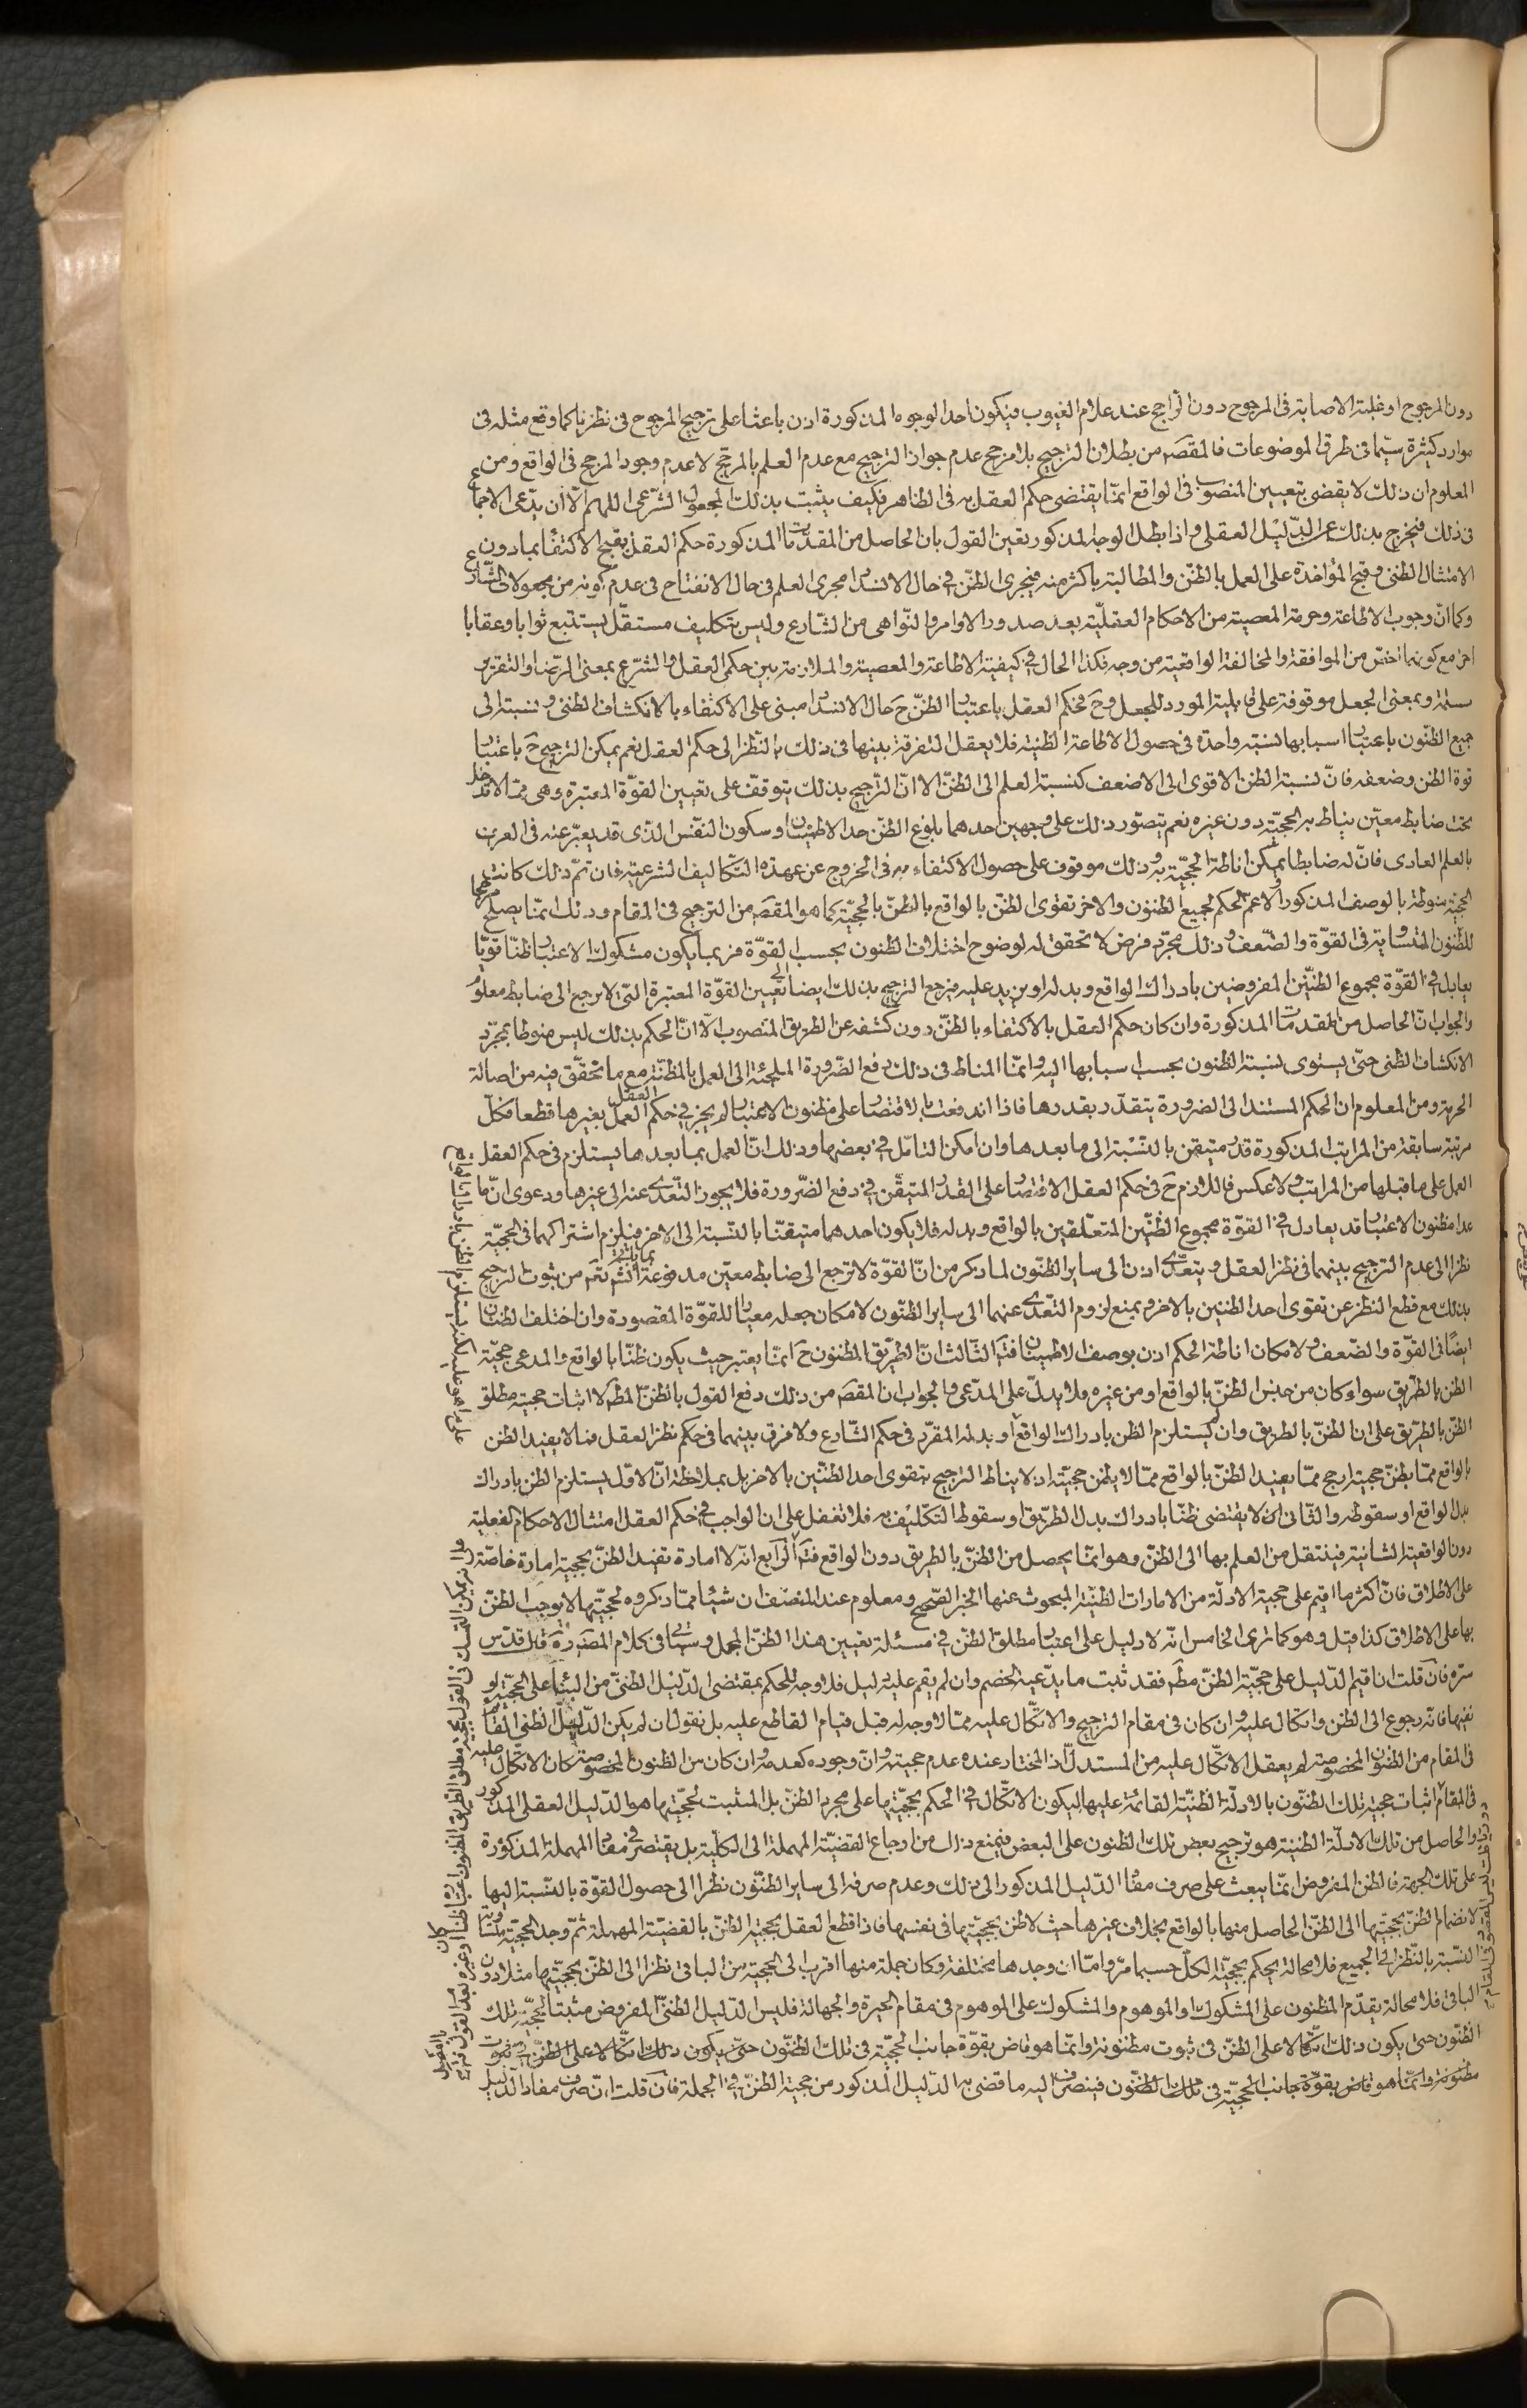 دون المرجوح او غلبة الاصابة فى المرجوح دون الراجح عند علام الغيوب فيكون احد الوجوه المذكورة اذن باعثا على ترجيح المرجوح فى نظرنا كما وقع مثله فى
موارد كثيرة سيّما فى طرق الموضوعات فالمقصَد من بطلان الترجيح بلا مرجح عدم جواز الترجيح مع عدم العلم بالمرجّح لا عدم وجود المرجح فى الواقع ومن
المعلوم ان ذلك لا يقضى بتعيين المنصوب فى الواقع انمّا يقتضى حكم العقل به فى الظاهر فكيف يثبت بذلك المجعول الشرعى اللهم الّا ان يدّعى الاجماع
فى ذلك فيخرج بذلك عن الدّليل العقلى واذا بطل الوجه المذكور تعين القول بان الحاصل من المقدّمات المذكورة حكم العقل بقبح الاكتفاء بما دون
الامتثال الظنى وقبح المؤاخذة على العمل بالظنّ والمطالبة باكثر منه فيجرى الظنّ فى حال الانسداد مجرى العلم فى حال الانفتاح فى عدم كونه من مجعولات الشارع
وكما انّ وجوب الاطاعة وحرمة المعصية من الاحكام العقليّة بعد صدور الاوامر والنّواهى من الشّارع وليس بتكليف مستقلّ يستتبع ثوابا وعقابا
اخر مع كونهما اخصّ من الموافقة والمخالفة الواقعية من وجه فكذا الحال فى كيفية الاطاعة والمعصية والملازمة بين حكمى العقل والشرع بمعنى الرّضا والتقرير
مسلمة وبمعنى الجعل موقوفة على قابلية المورد للجعل وح فحكم العقل باعتبار الظنّ ح حال الانسداد مبنى على الاكتفاء بالانكشاف الظنى ونسبته الى
جميع الظنّون باعتبار اسبابها نسبة واحدة فى حصول الاطاعة الظنية فلا يعقل التفرقة بينها فى ذلك بالنّظر الى حكم العقل نعم يمكن الترجيح ح باعتبار
قوة الظن وضعفه فانّ نسبة الظن الاقوى الى الاضعف كنسبة العلم الى الظنّ الا انّ الترّجيح بذلك يتوقّف على تعيين القوّة المعتبرة وهى ممّا لا تدخل
تحت ضابط معيّن يناط به الحجيّة دون غيره نعم يتصّور ذلك على وجهين احدهما بلوغ الظنّ حدّ الاطمينان وسكون النفّس الّذى قد يعبّر عنه فى العرف
بالعلم العادى فانّ له ضابطا يمكن اناطة الحجيّة به وذلك موقوف على حصول الاكتفاء به فى الخروج عن عهدة التّكاليف الشرعيّة فان تمّ ذلك كانت
الحجيّة منوطة بالوصف المذكور والّا عمّ الحكم لجميع الظنون والاخر تقوى الظنّ بالواقع بالظنّ بالحجيّة كما هو المقصَد من الترجيح فى المقام وذلك انمّا يصلح مرجّحا
للظّنون المتساوية فى القوّة والضّعف وذلك مجرّد فرض لا تحقق له لوضوح اختلاف الظنون بحسب القوّة فربما يكون مشكوك الاعتبار ظنّا قويّا
يعادل فى القوّة مجموع الظنّين المفروضين بادراك الواقع وبدله او يزيد عليه فيرجع الترجيح بذلك ايضا الى تعيين القوّة المعتبرة التّى لا يرجع الى ضابط معلوم
والجواب انّ الحاصل من المقدمات المذكورة وان كان حكم العقل بالاكتفاء بالظنّ دون كشفه عن الطريق المنصوب الّا انّ الحكم بذلك ليس منوطا بمجرّد
الانكشاف الظنى حتّى يستوى نسبة الظنون بحسب اسبابها اليه وانمّا المناط فى ذلك دفع الضّرورة الملجئة الى العمل بالمظنّة مع ما تحقّق فيه من اصالة
الحرمة ومن المعلوم ان الحكم المستند الى الضرورة يتقدّر بقدرها فاذا اندفعت بالاقتصار على مظنون الاعتبار لم يجز فى حكم العقل العمل بغيرها قطعا فكلّ
مرتبة سابقة من المراتب المذكورة قدر متيقن بالنّسبة الى ما بعدها وان امكن التامّل فى بعضها وذلك انّ العمل بما بعدها يستلزم فى حكم العقل
العمل على ما قبلها من المراتب ولا عكس فاللازم ح فى حكم العقل الاقتصار على القدر المتيقّن فى دفع الضّرورة فلا يجوز التعّدى عنه الى غيرها ودعوى انّ ما
عدا مظنون الاعتبار قد يعادل فى القوّة مجموع الظنّين المتعلّقين بالواقع وبدله فلا يكون احدهما متيقنّا بالنّسبة الى الاخر فيلزم اشتراكهما فى الحجيّة
نظرا الى عدم الترجيح بينهما فى نظر العقل ويتعدّى اذن الى ساير الظنّون لما ذكر من انّ القوّة لا ترجع الى ضابط معيّن مدفوعة
بذلك مع قطع النظر عن تقوى احد الظنين بالاخر ويمنع لزوم التعّدى عنهما الى ساير الظنّون لامكان جعله معيارا للقوّة المقصودة وان اختلف الظنّان
ايضًا فى القوّة والضّعف ولامكان اناطة الحكم اذن بوصف الاطمينان فتَم الثّالث انّ الطّريق المظنون ح انمّا يعتبر حيث يكون ظنّا بالواقع والمدعى حجيّة
الظن بالطّريق سواء كان من جنس الظنّ بالواقع او من غيره فلا يدلّ على المدّعى والجواب ان المقصَد من ذلك دفع القول بالظنّ المطلَق لا اثبات حجية مطلق
الظنّ بالطّريق على ان الظنّ بالطريق وان لم يستلزم الظن بادراك الواقع او بدله المقرّر فى حكم الشّارع ولا فرق بينهما فى حكم نظر العقل فما لا يفيد الظن
بالواقع ممّا يظنّ حجيته ارجح ممّا يفيد الظنّ بالواقع ممّا لا يظن حجيّته اذ لا يناط الترجيح بتقوى احد الظنّين بالاخر بل بملاحظة انّ الاوّل يستلزم الظن بادراك
بدل الواقع او سقوطه والثّانى لا يقتضى ظنّا بادراك بدل الطّريق او سقوط التّكليف به فلا تغفل على ان الواجب فى حكم العقل امتثال الاحكام الفعلية
دون الواقعية الشانية فينتقل من العلم بها الى الظنّ وهو انمّا يحصل من الظنّ بالطريق دون الواقع فتَم الرّابع انّه لا امارة تفيد الظنّ بحجية امارة خاصّة
على الاطلاق فانّ اكثر ما اقيم على حجية الادلّة من الامارات الظنيّة المبحوث عنها الخبر الصّحيح ومعلوم عند المنصف ان شيئا ممّا ذكروه لحجيّتها لا يوجب الظنّ
بها على الاطلاق كذا قيل وهو كما ترى الخامس انّه لا دليل على اعتبار مطلق الظنّ فى مسئلة تعيين هذا الظنّ المجمل وسياتى فى كلام المصنّف ره قال قدّس
سرّه فان قلت ان اقيم الدّليل على حجيّة الظنّ مطَم فقد ثبت ما يدّعيه الخصم وان لم يقم عليه دليل فلا وجه للحكم بمقتضى الدّليل الظنىّ من البناء على الحجيّة او
نفيها فانّه رجوع الى الظن واتكال عليه وان كان فى مقام الترجيح والاتّكال عليه ممّا لا وجه له قبل قيام القاطع عليه بل نقول ان لم يكن الدّليل الظنى القائم
فى المقام من الظنون المخصوصة لم يعقل الاتّكال عليه من المستدلّ اذ المختار عنده عدم حجيته وانّ وجوده كعدمه وان كان من الظنون المخصوصة كان الاتّكال عليه
فى المقام اثبات حجية تلك الظنّون بالادلّة الظنيّة القائمة عليها ليكون الاتّكال فى الحكم بحجيّتها على مجرد الظنّ بل المثبت لحجيّتها هو الدّليل العقلى المذكور
والحاصل من تلك الادلّة الظنية هو ترجيح بعض تلك الظنون على البعض فيمنع ذلك من ارجاع القضيّة المهملة الى الكليّة بل يقتصر فى مفاد المهملة المذكورة
على تلك الجهة فالظن المفروض انمّا يبعث على صرف مفاد الدّليل المذكور الى ذلك وعدم صرفه الى ساير الظنّون نظرا الى حصول القوّة بالنّسبة اليها
لانضمام الظنّ بحجيّتها الى الظنّ الحاصل منها بالواقع بخلاف غيرها حيث لا ظن بحجيّتها فى نفسها فاذا قطع العقل بحجيّة الظنّ بالقضيّة المهملة ثمّ وجد الحجيّة متساوية
النّسبة بالنّظر الى الجميع فلا محالة يحكم بحجيّة الكلّ حسبما مرّ وامّا ان وجدها مختلفة وكان جملة منها اقرب الى الحجيّة من الباقى نظرا الى الظنّ بحجيّتها مثلا دون
الباقى فلا محالة يقدّم المظنون على المشكوك او الموهوم والمشكوك على الموهوم فى مقام الحيرة والجهالة فليس الدّليل الظنىّ المفروض مثبتا لحجيّة تلك
الظنّون حتى يكون ذلك اتّكالا على الظنّ فى ثبوت مظنونه وانمّا هو قاض بقوّة جانب الحجيّة فى تلك الظنّون حتىّ يكون ذلك اتّكالا على الظنّ فى ثبوت
مظنونه وانمّا هو قاض بقوّة جانب الحجيّة فى تلك الظنّون فينصرف اليه ما قضى به الدّليل المذكور من حجية الظنّ فى الجملة فان قلت ان صرف مفاد الدّليل